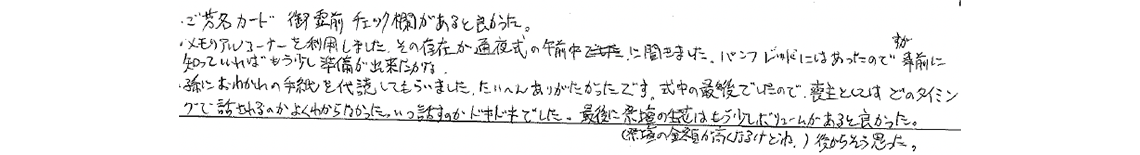 ・ご芳名カード 御霊前 チェック欄があると良かった。
・メモリアルコーナーを利用しました。その存在が通夜式の午前中に聞きました。パンフレットにはあったのですが事前に
知っていればもう少し準備が出来たかな。
・孫におわかれの手紙を代読してもらいました。たいへんありがたかったです。式中の最後でしたので、喪主としては どのタイミ
ングで話されるのかよくわからなかった。いつ話すのかドキドキでした。最後に祭壇の生花はもう少しボリュームがあると良かった。
(祭壇の金額が高くなるけどね。) 後からそう思った。